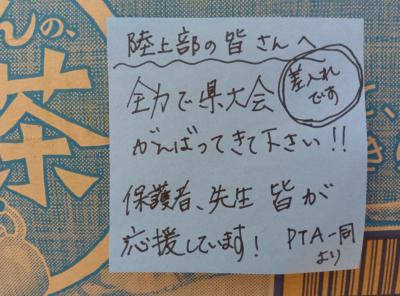 んの、
茶
陸上部の皆さんへ
差入れ
です
全力で県大会
がんばってきて下さい!!
保護者、先生 皆が
応援しています!
PTA一同
より